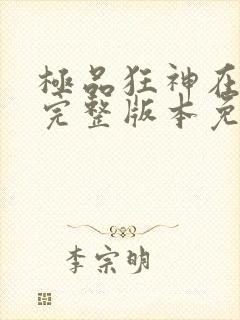 極品狂神在
完整版本免
李宗明